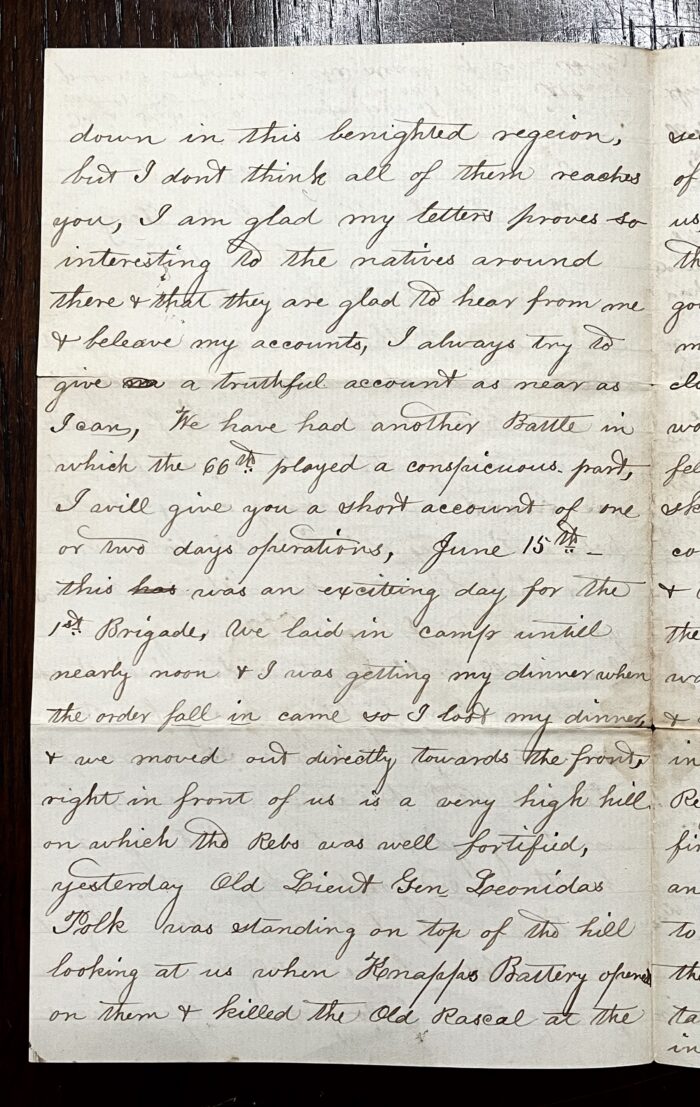 down in this benighted regeion,
but I dont think all of them reaches
you, I am glad my letters proves so
interesting to the natives around
there & that they are glad to hear from me
& beleave my accounts, I always try to
give a truthful account as near as
I can, We have had another Battle in
which the 66th played a conspicuous part,
I will give you a short account of one
or two days operations, June 15th -
this has was an exciting day for the
1st Brigade, We laid in camp untill
nearly noon & I was getting my dinner when
the order fall in came so I lost my dinner,
& we moved out directly towards the front,
right in front of us is a very high hill
on which the Rebs was well fortified,
yesterday Old Lieut Gen Leonidas
Polk was standing on top of the hill
looking at us when Knapps Battery opened
on them & killed the Old Rascal at the
of
us,
&
the
&
in
an
to
in